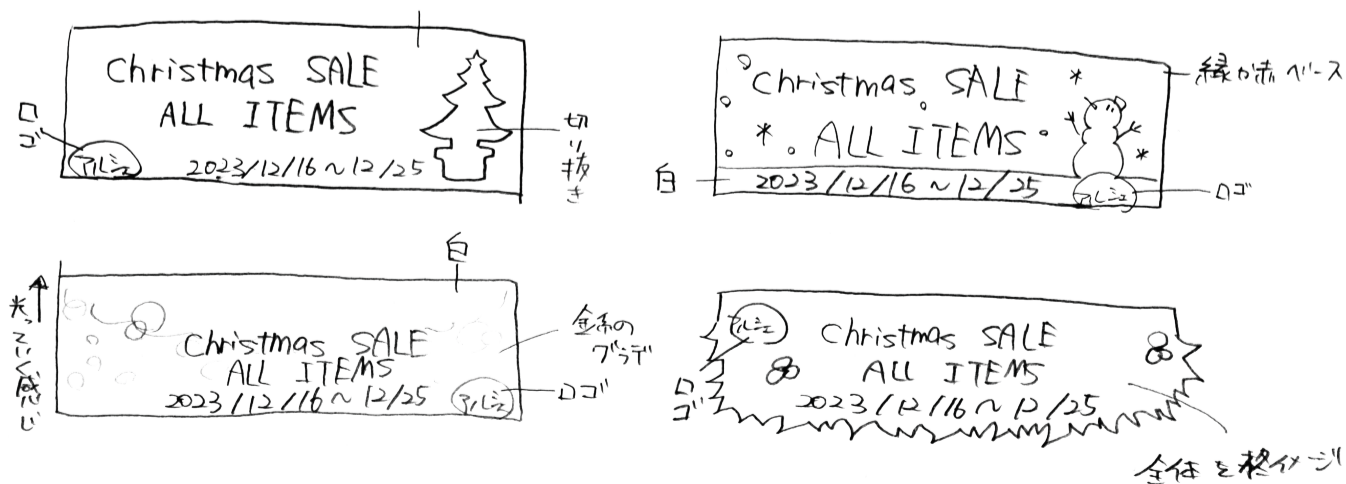 Christmas SALE
ALL ITEMS
2023/12/16〜12/25
アルシェ
ロゴ
切り抜き
Christmas SALE
ALL ITEMS
2023/12/16〜12/25
アルシェ
縁が赤ベース
白
ロゴ
白
光っていく感じ
Christmas SALE
ALL ITEMS
2023/12/16〜12/25
アルシェ
金系の
グラデ
ロゴ
アルシェ
Christmas SALE
ALL ITEMS
2023/12/16〜12/25
ロゴ
全体を柊イメージ